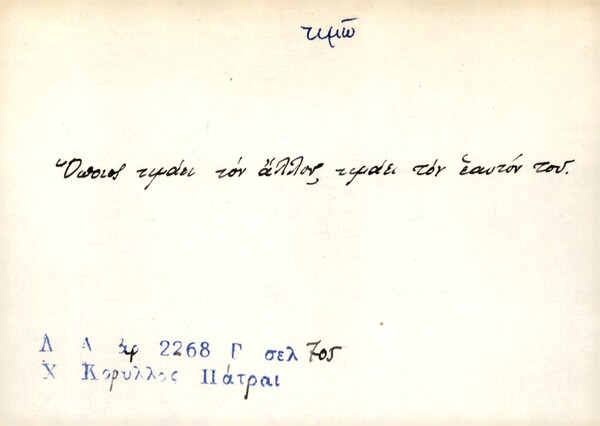 τιμῶ
Ὅποιος τιμάει τὸν ἄλλον, τιμάει τὸν ἑαυτόν του.
Λ Α ἀρ 2268 Γ σελ 705
Χ Κορυλλος Πάτραι